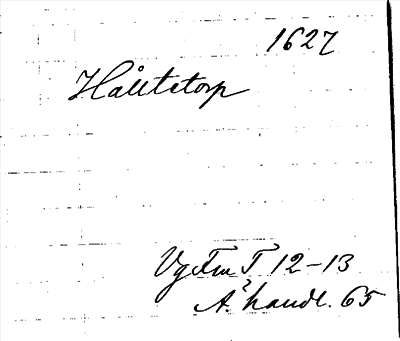 1627
Hålltstorp
VgFm T 12-13
Ä. handl. 65